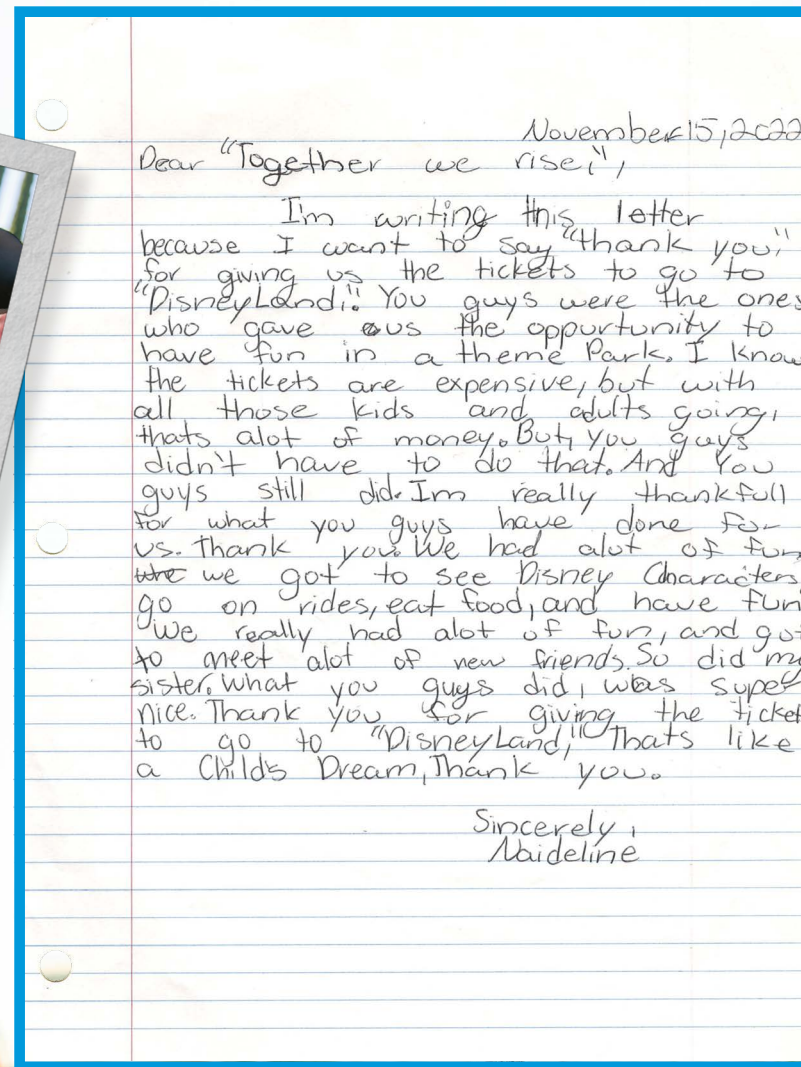 November 15, 2022
Dear "Together we rise,",
I'm writing this letter
because I want to say "thank you,"
for giving us the tickets to go to
"DisneyLand,". You guys were the ones
who gave us the oppurtunity to
have fun in a theme Park. I know
the tickets are expensive, but with
all those kids and adults going,
thats alot of money. But, you guys
didn't have to do that. And You
guys still did. Im really thankfull
for what you guys have done for
us. Thank you. We had alot of fun
we got to see Disney Characters
go on rides, eat food, and have fun
We really had alot of fun, and got
to meet alot of new friends. So did m
sister. What you guys did, was super
nice. Thank you for giving the ticket
to go to "DisneyLand," Thats like
a Childs Dream, Thank you.
Sincerely,
Naideline